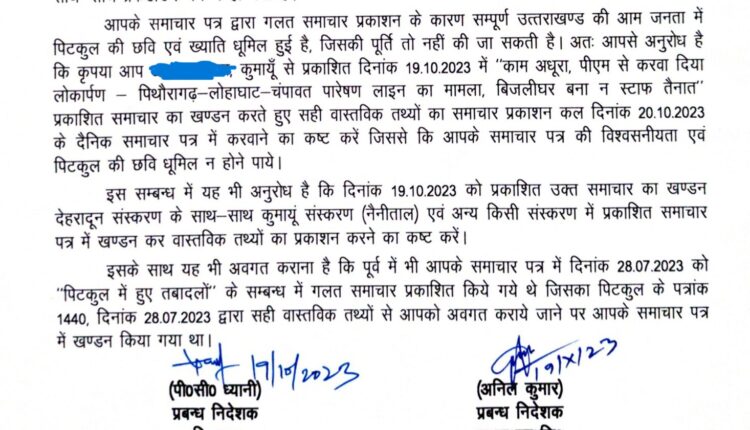 आपके समाचार पत्र द्वारा गलत समाचार प्रकाशन के कारण सम्पूर्ण उत्तराखण्ड की आम जनता में
पिटकुल की छवि एवं ख्याति धूमिल हुई है, जिसकी पूर्ति तो नहीं की जा सकती है। अतः आपसे अनुरोध है
कि कृपया आप , कुमायूँ से प्रकाशित दिनांक 19.10.2023 में "काम अधूरा, पीएम से करवा दिया
लोकार्पण – पिथौरागढ़–लोहाघाट–चंपावत पारेषण लाइन का मामला, बिजलीघर बना न स्टाफ तैनात"
प्रकाशित समाचार का खण्डन करते हुए सही वास्तविक तथ्यों का समाचार प्रकाशन कल दिनांक 20.10.2023
के दैनिक समाचार पत्र में करवाने का कष्ट करें जिससे कि आपके समाचार पत्र की विश्वसनीयता एवं
पिटकुल की छवि धूमिल न होने पाये।
इस सम्बन्ध में यह भी अनुरोध है कि दिनांक 19.10.2023 को प्रकाशित उक्त समाचार का खण्डन
देहरादून संस्करण के साथ–साथ कुमायूं संस्करण (नैनीताल) एवं अन्य किसी संस्करण में प्रकाशित समाचार
पत्र में खण्डन कर वास्तविक तथ्यों का प्रकाशन करने का कष्ट करें।
इसके साथ यह भी अवगत कराना है कि पूर्व में भी आपके समाचार पत्र में दिनांक 28.07.2023 को
"पिटकुल में हुए तबादलों" के सम्बन्ध में गलत समाचार प्रकाशित किये गये थे जिसका पिटकुल के पत्रांक
1440, दिनांक 28.07.2023 द्वारा सही वास्तविक तथ्यों से आपको अवगत कराये जाने पर आपके समाचार पत्र
में खण्डन किया गया था।
19/10/2023 19/X/23
(पी0सी0 ध्यानी) (अनिल कुमार)
प्रबन्ध निदेशक प्रबन्ध निदेशक